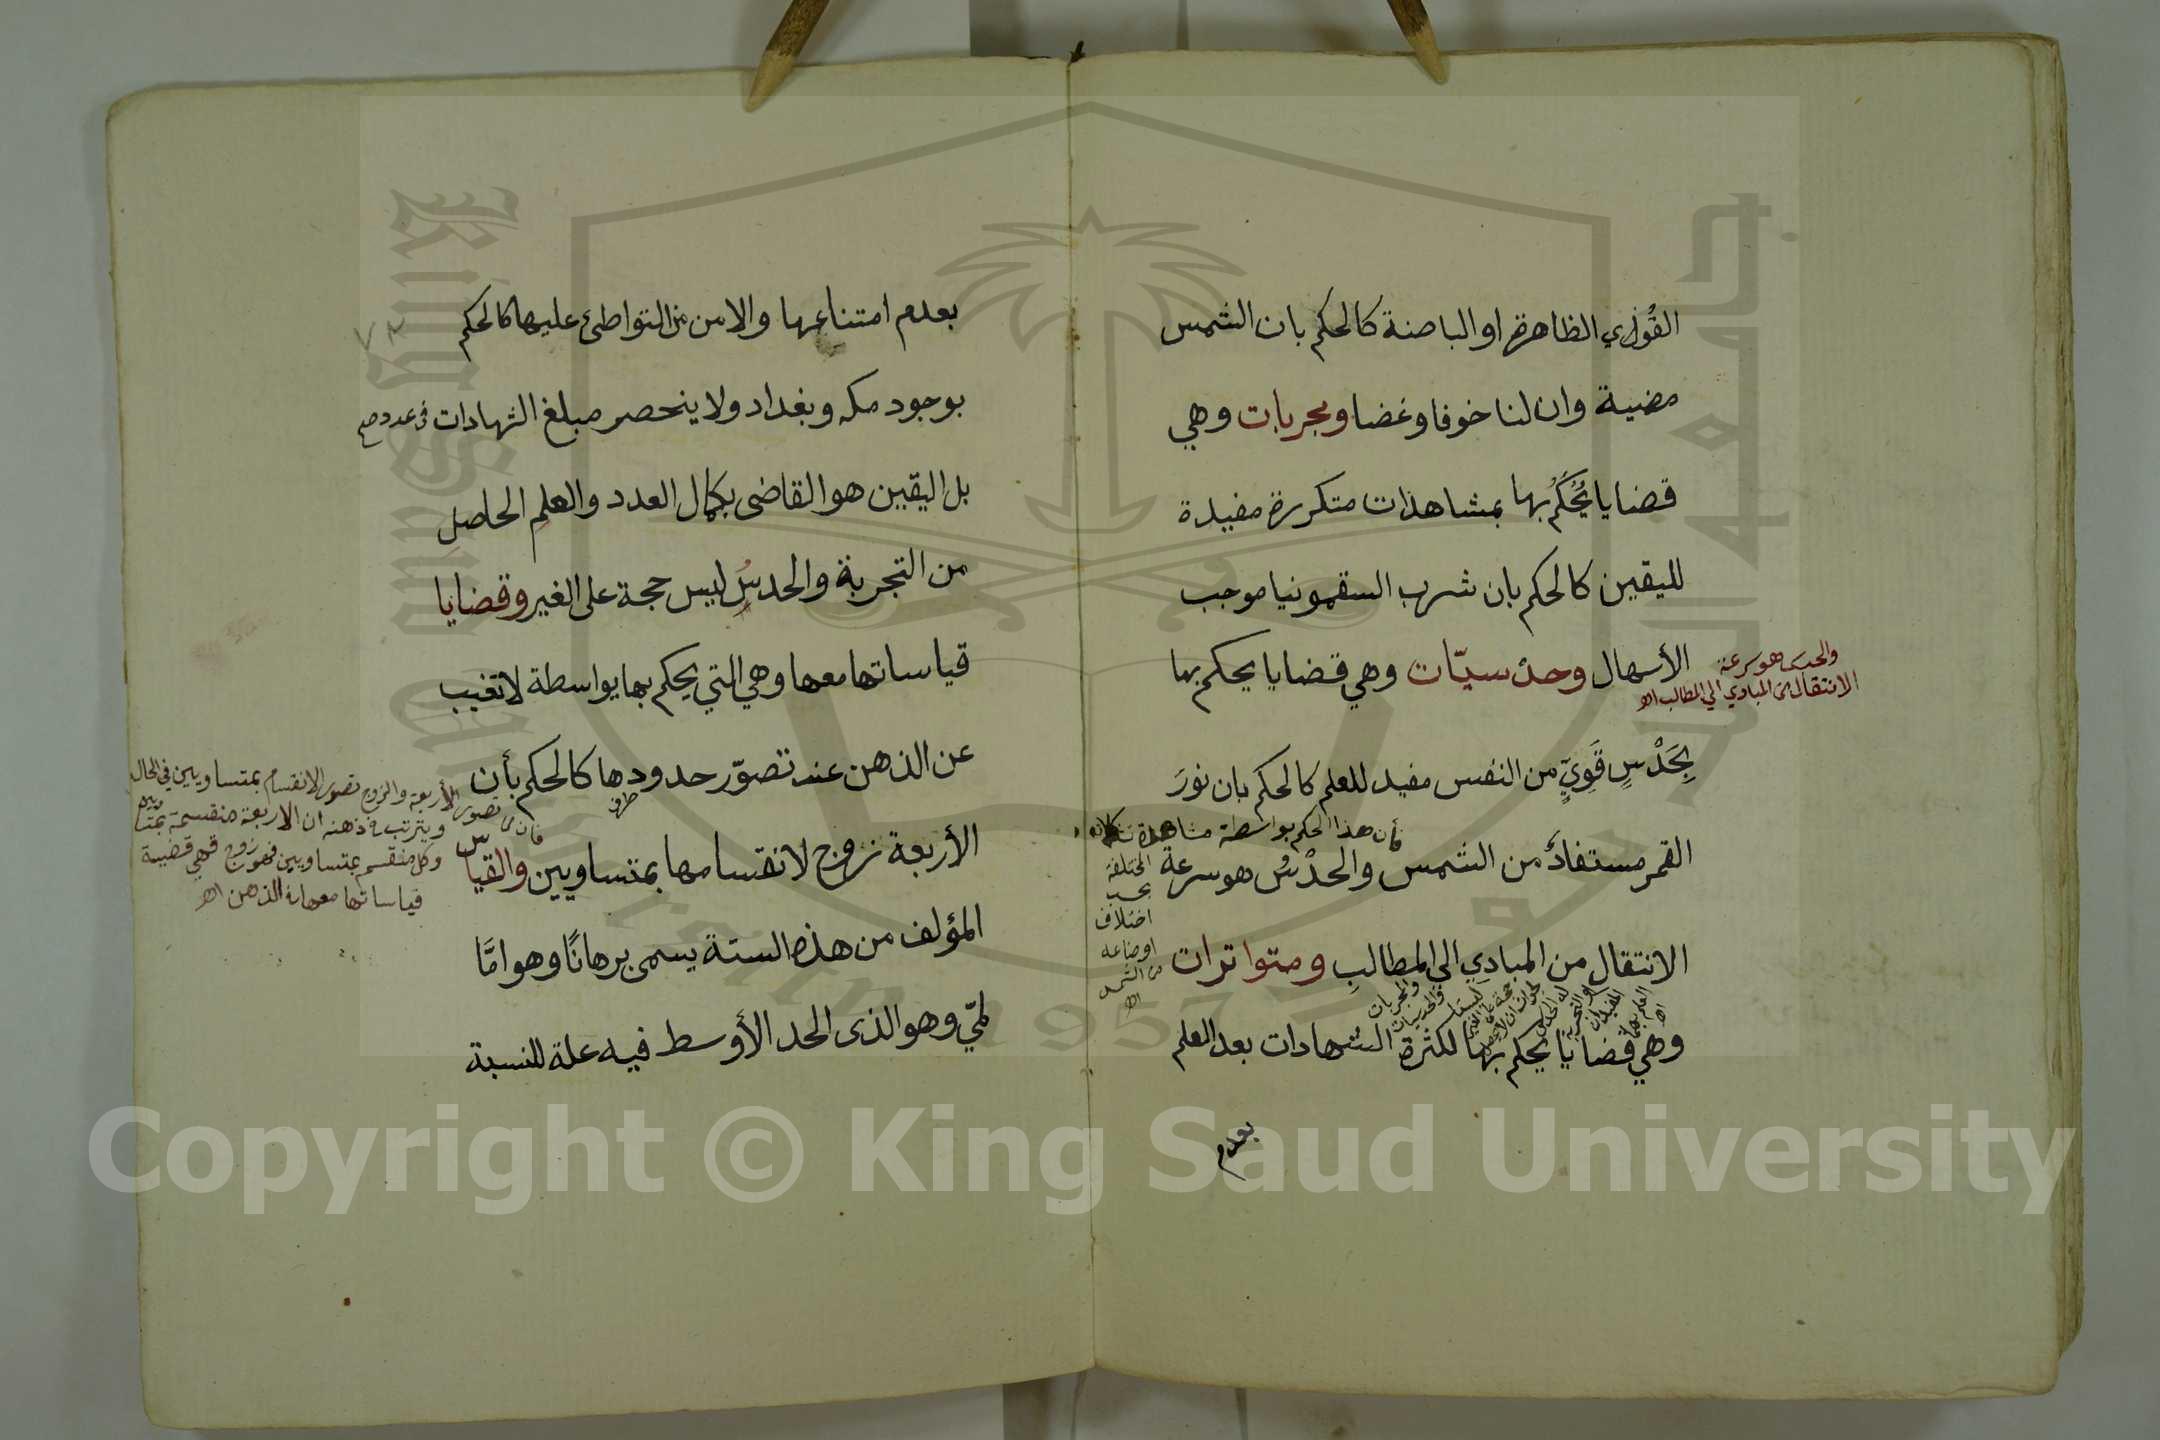 القُوٰي الظاهرة او الباصنة كالحكم بان الشمس
مضيية وان لنا خوفا وغضا ومجربات وهي
قضايا يُحْكَمُ بها بمشاهدات متكررة مفيدة
لليقين كالحكم بان شرب السقمونيا موجب
الأسهال وحدسيّات وهي قضايا يحكم بها
والحدس هو سرعة
الانتقال من المبادي الي المطالب اه
بِحَدْسٍ قَوِيٍّ من النفس مفيد للعلم كالحكم بان نورَ
فأن هذا الحكم بواسطة مشاهدة
القمر مستفادٌ من الشمس والحدْسُ هو سرعة
المختلفة
بحسب
اختلاف
اوضاعه
من الشمس
اه
الانتقال من المبادي الي المطالبِ ومتواترات
والمجربات
والحدسيات
وهي قضايا يحكم بها لكثرة الشهادات بعد العلم
بعدم
بعدم امتناعها والامن من التواطئ عليها كالحكم
٧٢
بوجود مكه وبغداد ولا ينحصر مبلغ الشهادات في عدد
بل اليقين هو القاضى بكمال العدد والعلم الحاصل
من التجربة والحدسُ ليس حجة على الغير وقضايا
قياساتها معها وهي التي يحكم بها بواسطة لا تغيب
عن الذهن عند تصوّر حدودها كالحكم بأن
فأن من تصور الأربعة والزوج تصور الانقسام بمتساويين في الحال
ويترتب في ذهنه ان الاربعة منقسمة
وكل منقسم بمتساويين فهو زوج فهي قضية
قياساتها معها في الذهن اه
الأربعة زوج لانقسامها بمتساويين والقياس
المؤلف من هذه الستة يسمى برهانًا وهو امَّا
لمّي وهو الذى الحد الأوسط فيه علة للنسبة
Copyright © King Saud University